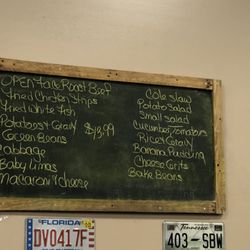 OPEN Face Roast Beef
Fried Chicken Strips
Fried White Fish
Potatoes & Gravy $13.99
Green Beans
Cabbage
Baby Limas
Macaroni & Cheese
Cole Slaw
Potato Salad
Small Salad
Cucumber/Tomatoes
Rice & Gravy
Banana Pudding
Cheese Grits
Bake Beans
FLORIDA
DV0417F
Tennessee
403 SBW